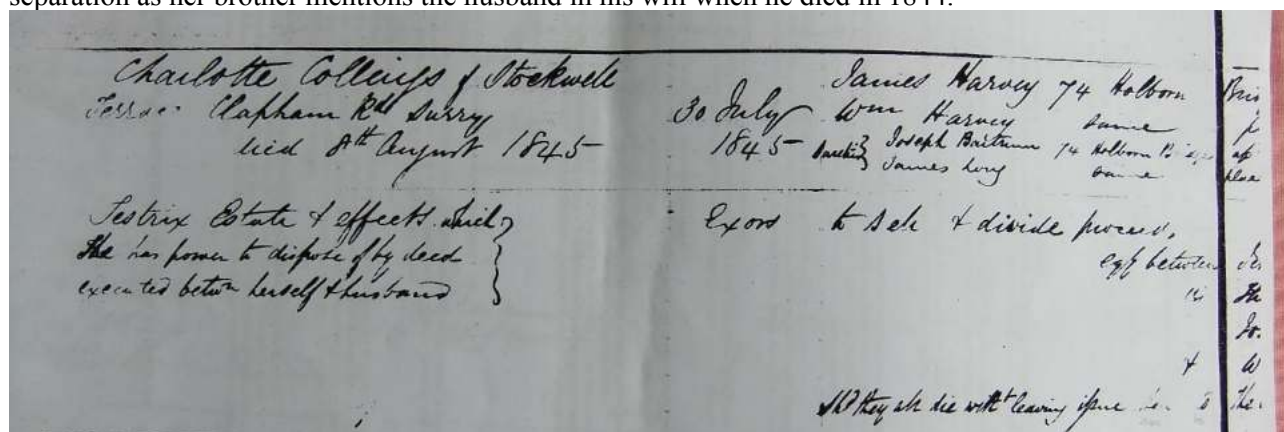 separation as her brother mentions the husband in his will when he died in 1844.
Charlotte Collings of Stockwell
Terrace Clapham Rd Surry
died 8th August 1845
30 July
1845
James Harvey 74 Holborn
Wm Harvey same
Joseph Bartrum 74 Holborn
James Long same
Testrix Estate & effects which
She has power to dispose of by deed
executed betwn herself & husband
Exors to sell & divide proceed,
eqy between
&
shd they all die witht leaving issue